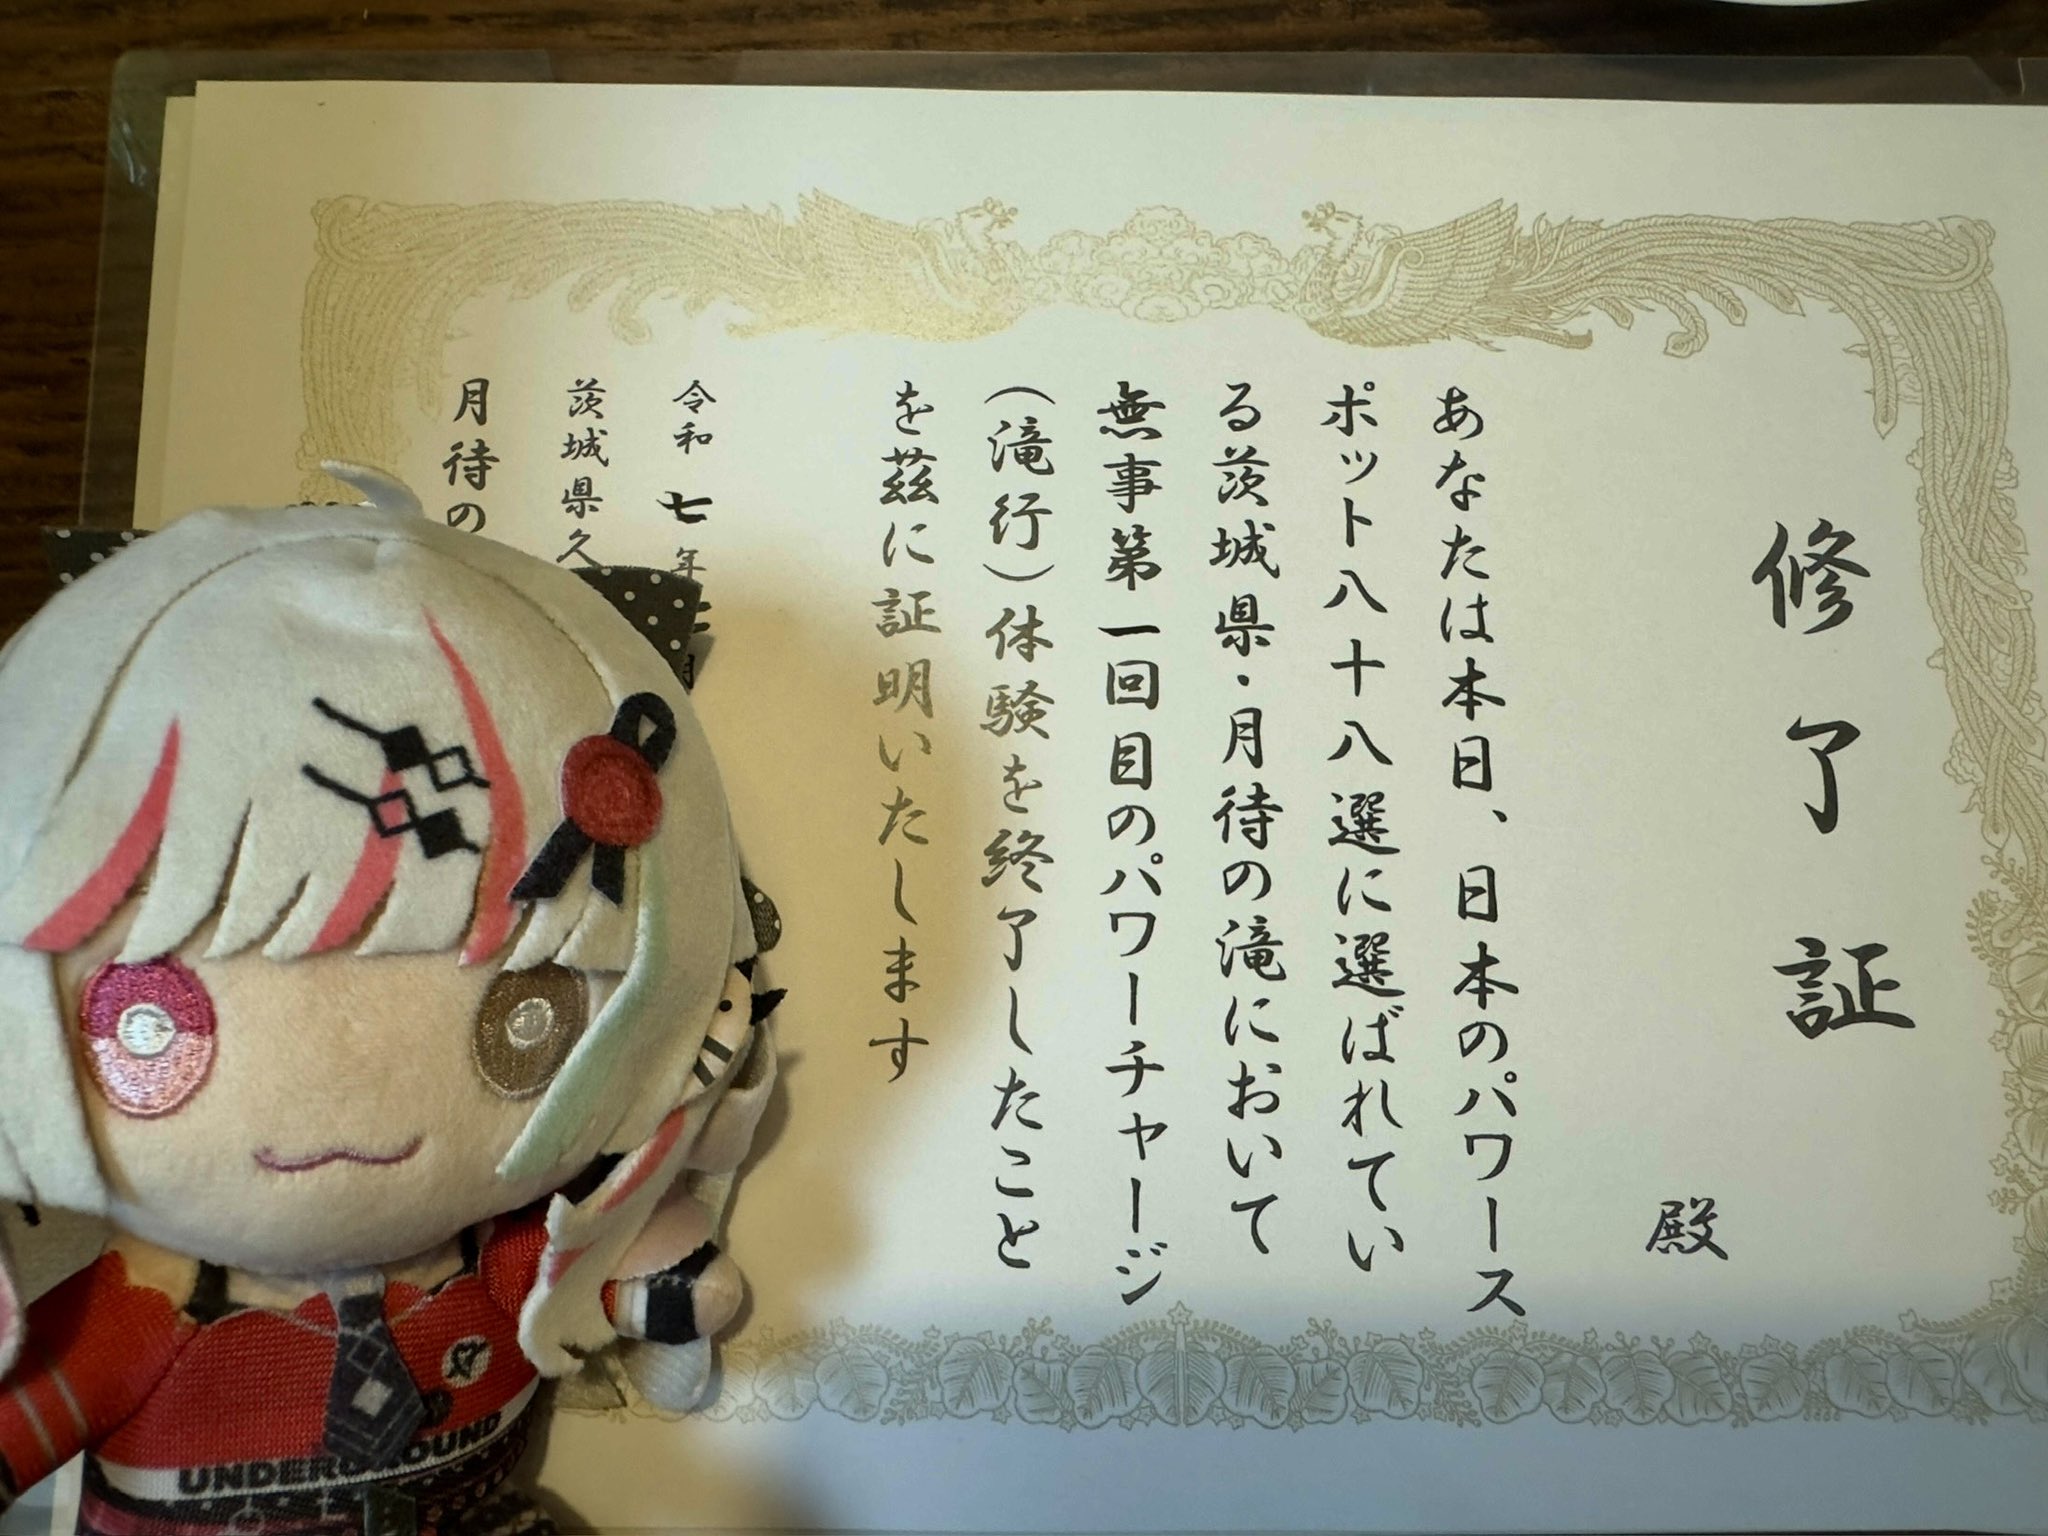 修了証
殿
あなたは本日、日本のパワース
ポット八十八選に選ばれてい
る茨城県・月待の滝において
無事第一回目のパワーチャージ
(滝行)体験を終了したこと
を茲に証明いたします
令和 七年
茨城県久
月待の
UNDERGROUND